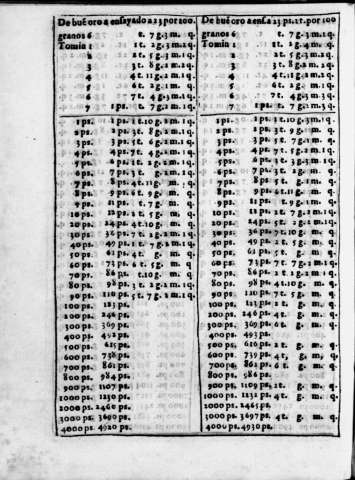 De bué oro a ensayado a 23 por 100.
granos 6 t. 7 g. 3 m. q.
Tomin 1 1 t. 2 g. 3 m. 2 q.
2 2 t. 5 g. 2 m. 1 q.
3 3 t. 8 g. 2 m. 1 q.
4 4 t. 11 g. 2 m. q.
5 6 t. 1 g. 3 m. q.
6 7 t. 4 g. 3 m. 1 q.
7 1 ps. t. 7 g. 2 m. 1 q.
1 ps. 1 ps. 1 t. 10 g. 2 m. 1 q.
2 ps. 2 ps. 3 t. 8 g. 2 m. 1 q.
3 ps. 3 ps. 5 t. 6 g. 2 m. q.
4 ps. 4 ps. 7 t. 4 g. 1 m. 1 q.
5 ps. 6 ps. 1 t. 2 g. 1 m. q.
6 ps. 7 ps. 3 t. g. 2 m. q.
7 ps. 8 ps. 4 t. 11 g. m. q.
8 ps. 9 ps. 6 t. 9 g. m. q.
9 ps.
10 ps. 12 ps. 2 t. 5 g. m. q.
20 ps. 24 ps. 4 t. 10 g. m. q.
30 ps. 36 ps. 7 t. 2 g. m. 1 q.
40 ps. 49 ps. 1 t. 7 g. 2 m. 1 q.
50 ps. 61 ps. 4 t. g. m. q.
60 ps. 73 ps. 6 t. 5 g. m. q.
70 ps. 86 ps. t. 10 g. m. q.
80 ps. 98 ps. 3 t. 2 g. 2 m. 1 q.
90 ps. 110 ps. 5 t. 7 g. 2 m. 1 q.
100 ps. 123 ps.
200 ps. 246 ps.
300 ps. 369 ps.
400 ps. 492 ps.
500 ps. 615 ps.
600 ps. 738 ps.
700 ps. 861 ps.
800 ps. 984 ps.
900 ps. 1107 ps.
1000 ps. 1230 ps.
2000 ps. 2460 ps.
3000 ps. 3690 ps.
4000 ps. 4920 ps.
De bué oro a ensa. 23 ps. 2 t. por 100
granos 6 t. 7 g. 3 m. q.
Tomin 1 1 t. 2 g. 4 m. q.
2 2 t. 5 g. 3 m. q.
3 3 t. 8 g. 2 m. 1 q.
4 4 t. 11 g. 2 m. 1 q.
5 6 t. 2 g. 1 m. q.
6 7 t. 4 g. 3 m. 1 q.
7 1 ps. t. 7 g. 3 m. q.
1 ps. 1 ps. 1 t. 10 g. 3 m. q.
2 ps. 2 ps. 3 t. 9 g. 1 m. q.
3 ps. 3 ps. 5 t. 7 g. m. q.
4 ps. 4 ps. 7 t. 5 g. 2 m. 1 q.
5 ps. 6 ps. 1 t. 3 g. 3 m. q.
6 ps. 7 ps. 3 t. 2 g. m. q.
7 ps. 8 ps. 5 t. g. 1 m. q.
8 ps. 9 ps. 6 t. 11 g. m. q.
9 ps. 11 ps. t. 9 g. m. q.
10 ps. 12 ps. 2 t. 7 g. 2 m. 1 q.
20 ps. 24 ps. 5 t. 2 g. m. 1 q.
30 ps. 36 ps. 7 t. 10 g. m. q.
40 ps. 49 ps. 2 t. 5 g. m. q.
50 ps. 61 ps. 5 t. g. m. q.
60 ps. 73 ps. 7 t. 7 g. m. 1 q.
70 ps. 86 ps. 2 t. 2 g. 2 m. 1 q.
80 ps. 98 ps. 4 t. 10 g. m. q.
90 ps. 110 ps. 7 t. 5 g. m. q.
100 ps. 123 ps. 2 t. g. m. q.
200 ps. 246 ps. 4 t. g. m. q.
300 ps. 369 ps. 6 t. g. m. q.
400 ps. 493 ps.
500 ps. 616 ps. 2 t. g. m. q.
600 ps. 739 ps. 4 t. g. m. q.
700 ps. 862 ps. 6 t. g. m. q.
800 ps. 986 ps.
900 ps. 1109 ps. 2 t. g. m. q.
1000 ps. 1232 ps. 4 t. g. m. q.
2000 ps. 2465 ps.
3000 ps. 3697 ps. 4 t. g. m. q.
4000 ps. 4930 ps.